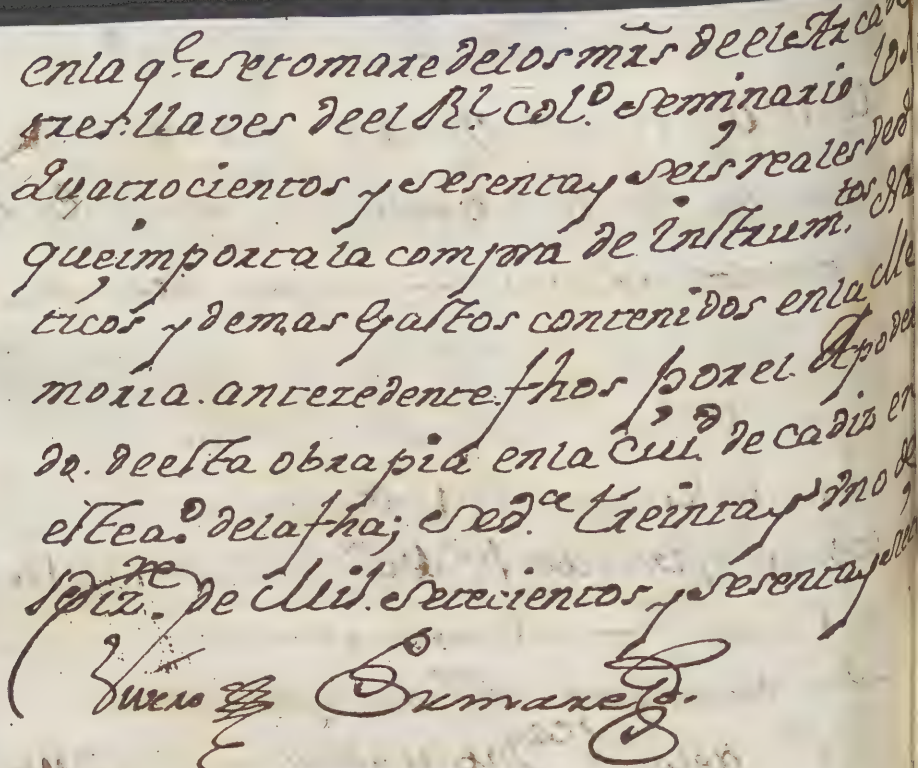 en la q.e se tomare de los mrs de el Arca de
tres llaves de el R.l col.o seminario los
Quatrocientos y sesenta y seis reales de
que importa la compra de Instrum.tos
ticos y demas Gastos contenidos en la Me
moria antezedente fhos por el Apodera
do de esta obra pia en la Ciu.d de cadiz en
este a.o de la fha; treinta y uno de
Diz.re de Mil setecientos y sesenta y